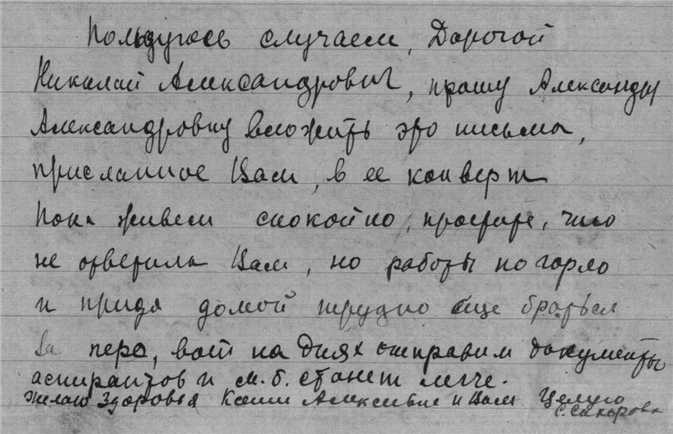 Пользуюсь случаем, Дорогой
Николай Александрович, прошу Александру
Александровну вложить это письмо,
присланное Вам, в ее конверт
Пока живем спокойно, простите, что
не ответила Вам, но работы по горло
и придя домой трудно еще браться
за перо, вот на днях отправим документы
аспирантов и м.б. станет легче.
Желаю здоровья Ксении Алексеевне и Вам Целую
С. Сахарова